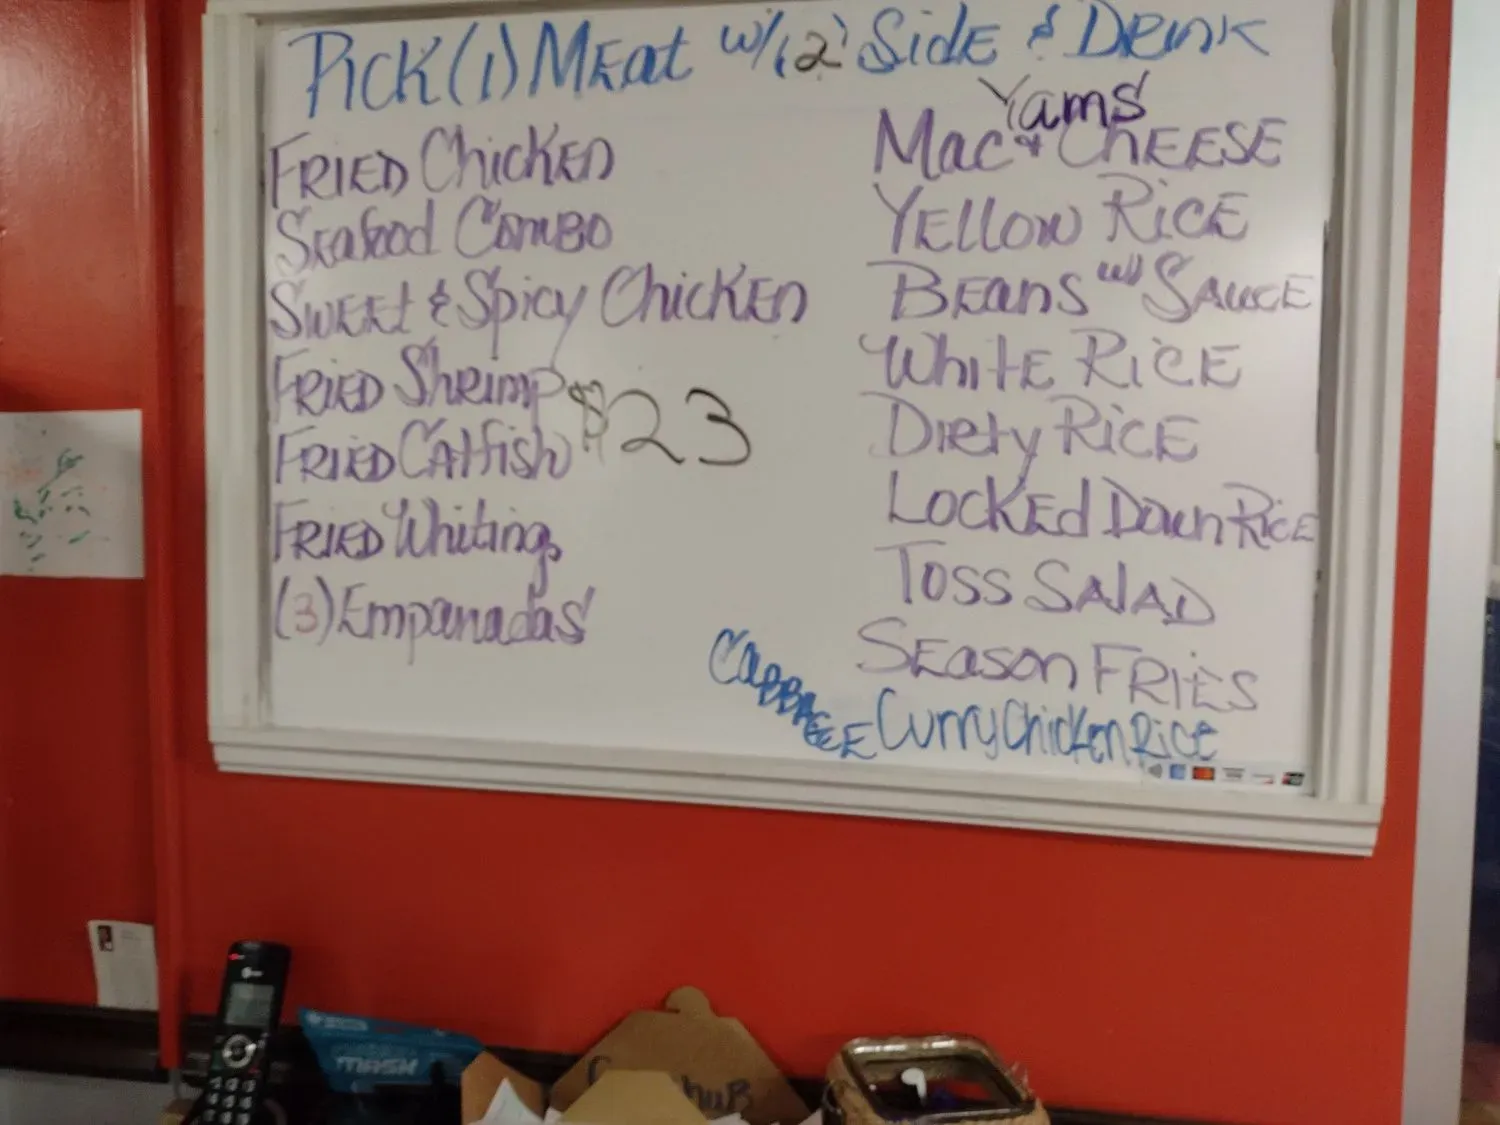 PICK (1) MEAt w/ (2) SidE & DRINK
FRIED ChicKEN
Seafood ComBo
SWEEt & Spicy ChicKEN
FRIED ShRImp
$23
FRIED CAtfish
FRIED Whiting
(3) Empanadas
Yams
Mac & ChEESE
YEllow RiCE
BEans w/ SAucE
WhitE RiCE
DiRty RiCE
LocKEd Down RiCE
Toss SAlAD
SEason FRiES
CaBBAGEE
Curry Chicken Rice
MASK